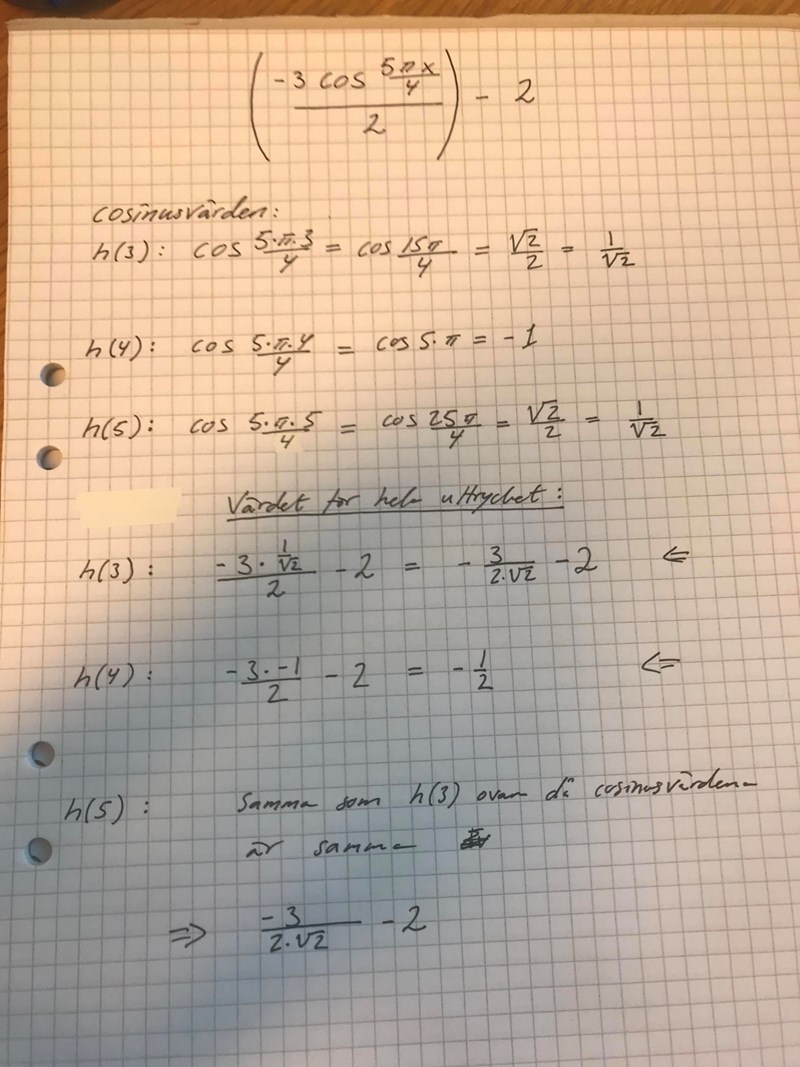 (-3 cos 5πx/4 / 2) - 2
cosinusvärden:
h(3): cos 5·π·3/4 = cos 15π/4 = √2/2 = 1/√2
h(4): cos 5·π·4/4 = cos 5·π = -1
h(5): cos 5·π·5/4 = cos 25π/4 = √2/2 = 1/√2
Värdet för hela uttrycket:
h(3): -3·1/√2 / 2 - 2 = - 3/2·√2 - 2 ⇐
h(4): -3·-1/2 - 2 = -1/2 ⇐
h(5): Samma som h(3) ovan då cosinusvärdena
är samma
⇒ -3/2·√2 - 2